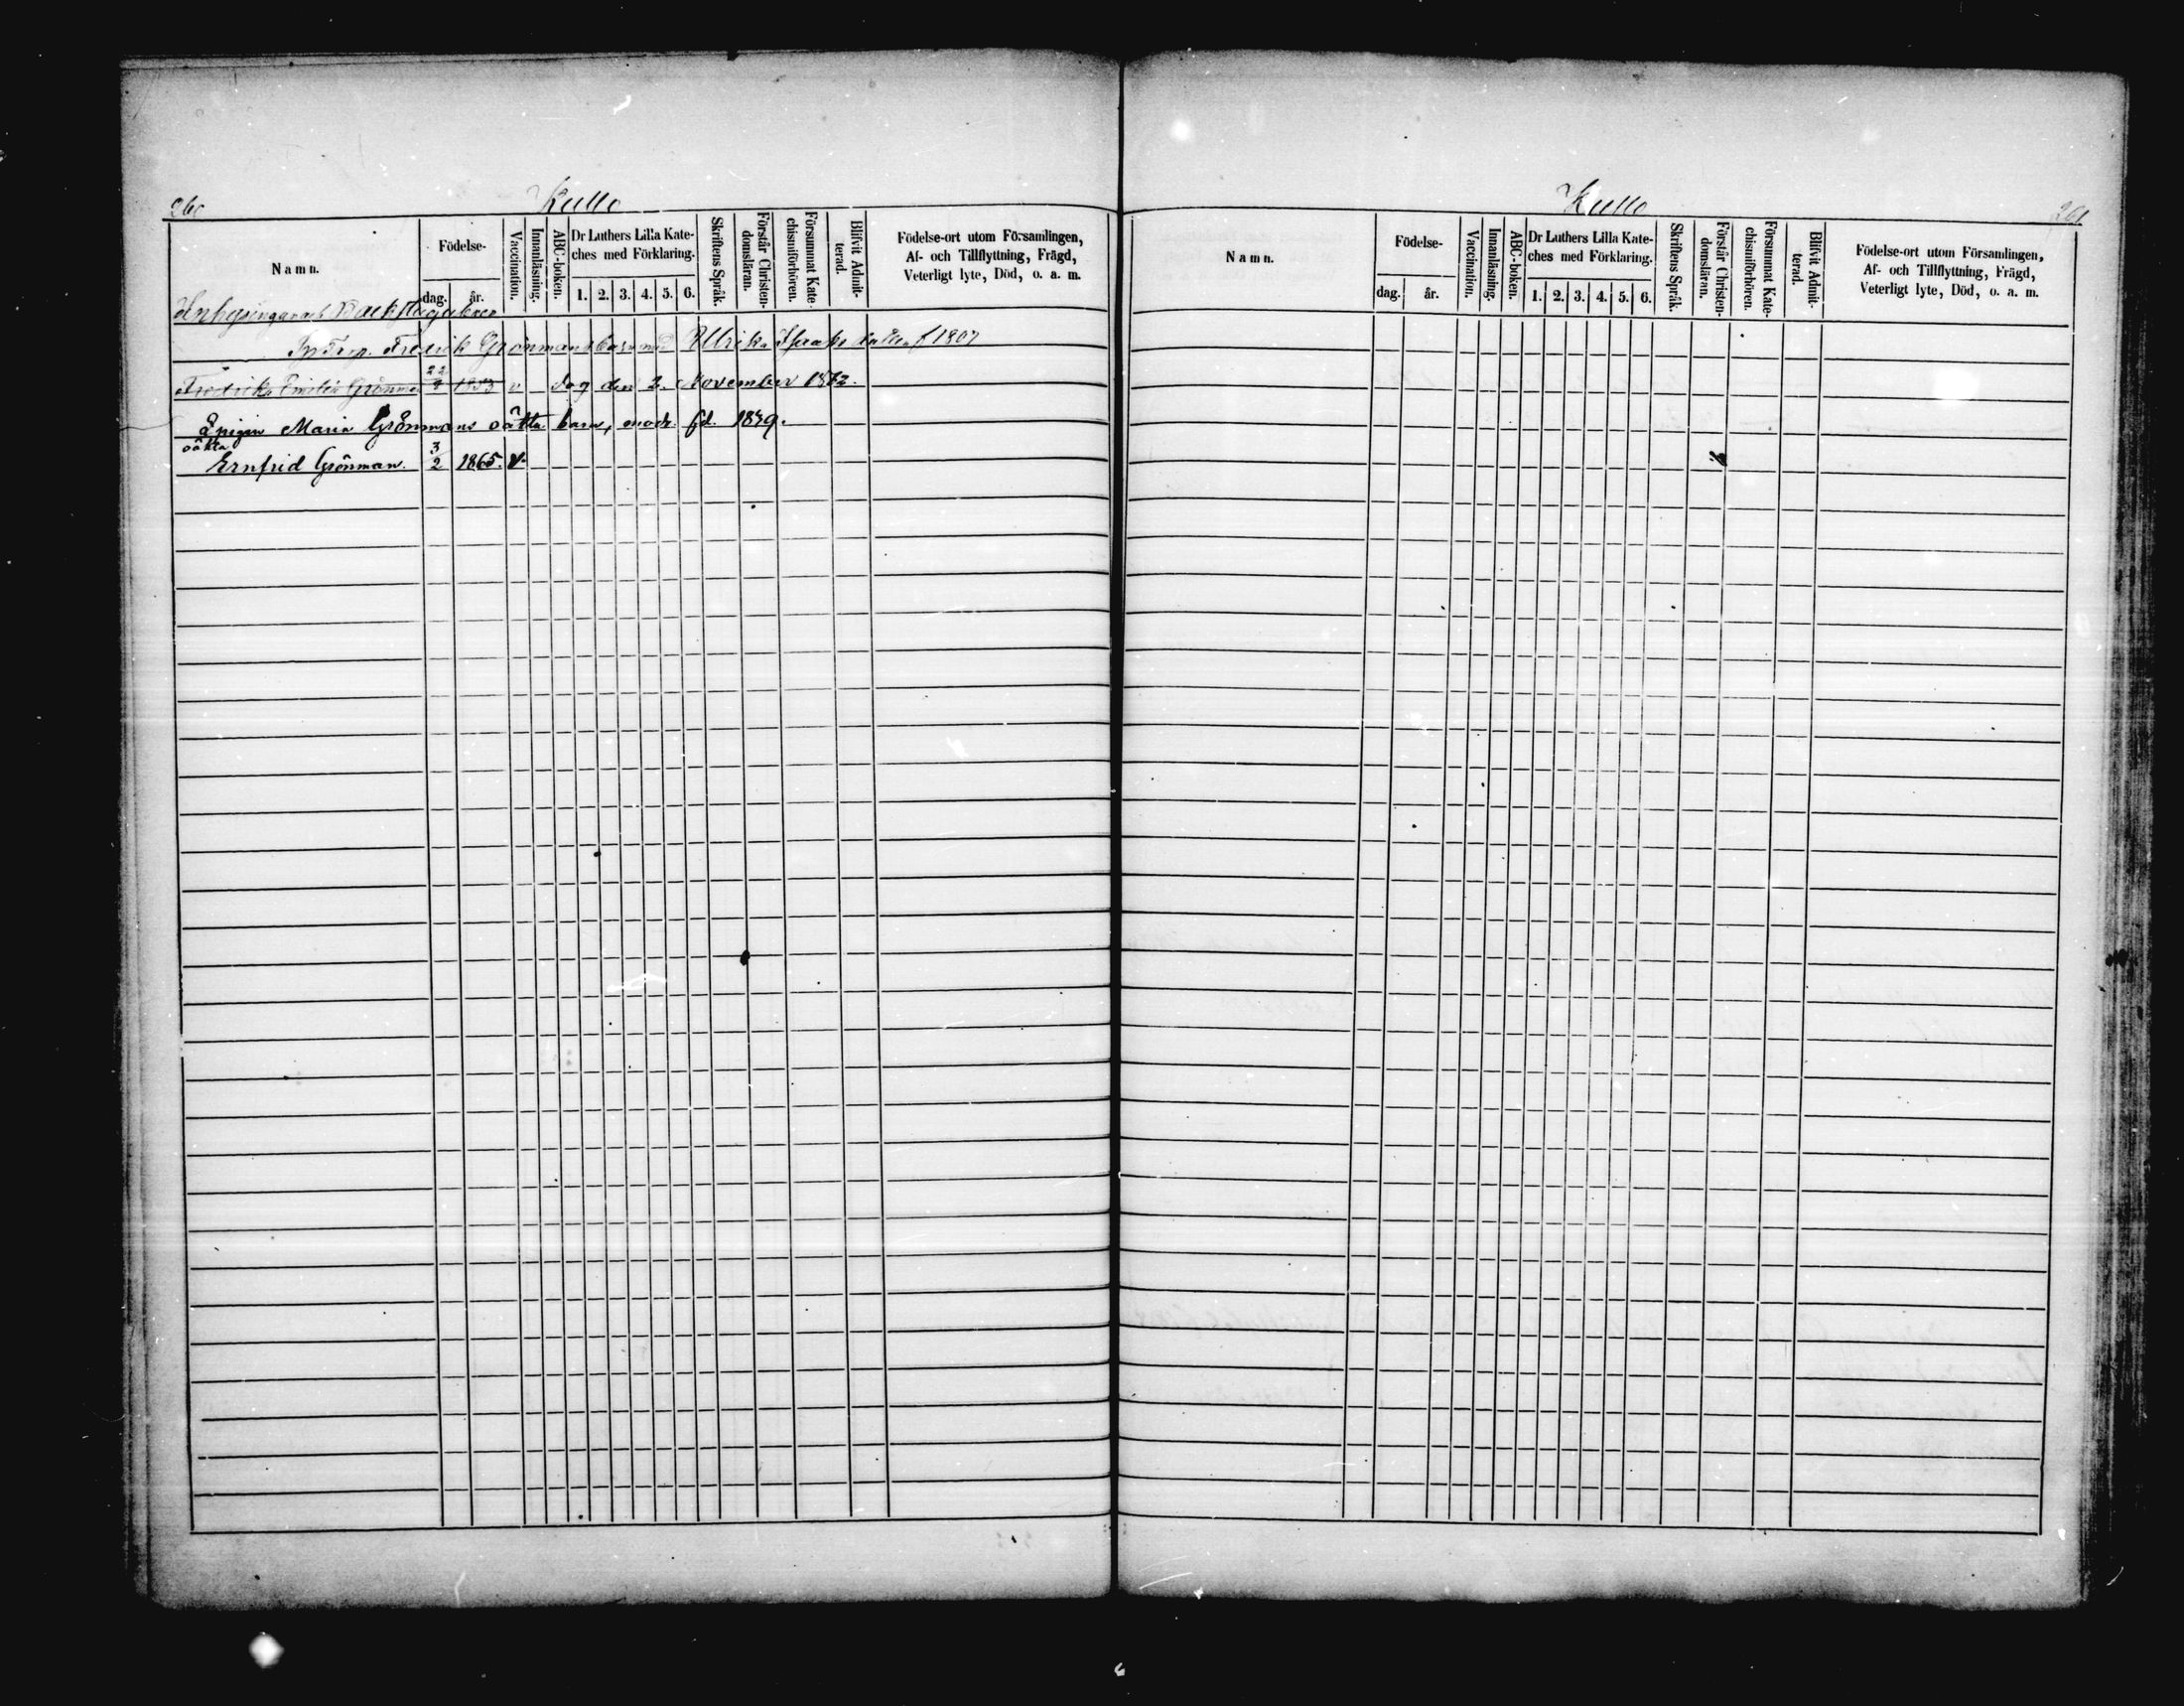 260
Kullo
Namn.
Födelse-
dag.
år.
Vaccination.
Innanläsning.
ABC-boken.
Dr Luthers Lilla Kate-
ches med Förklaring.
1. 2. 3. 4. 5. 6.
Skriftens Språk.
Förstår Christen-
domsläran.
Försummat Kate-
chismiförhören.
Blifvit Admit-
terad.
Födelse-ort utom Församlingen,
Af- och Tillflyttning, Frägd,
Veterligt lyte, Död, o. a. m.
Fredrik Grönmans barn med Ulrika f 1807
Fredrika Emilia Grönman 22/9 1853 v dog den 2. November 1872.
Maria Grönmans oäkta barn, modr. fd. 1829.
oäkta
Ernfrid Grönman. 3/2 1865. v.
Kullo
261
Namn.
Födelse-
dag.
år.
Vaccination.
Innanläsning.
ABC-boken.
Dr Luthers Lilla Kate-
ches med Förklaring.
1. 2. 3. 4. 5. 6.
Skriftens Språk.
Förstår Christen-
domsläran.
Försummat Kate-
chismiförhören.
Blifvit Admit-
terad.
Födelse-ort utom Församlingen,
Af- och Tillflyttning, Frägd,
Veterligt lyte, Död, o. a. m.